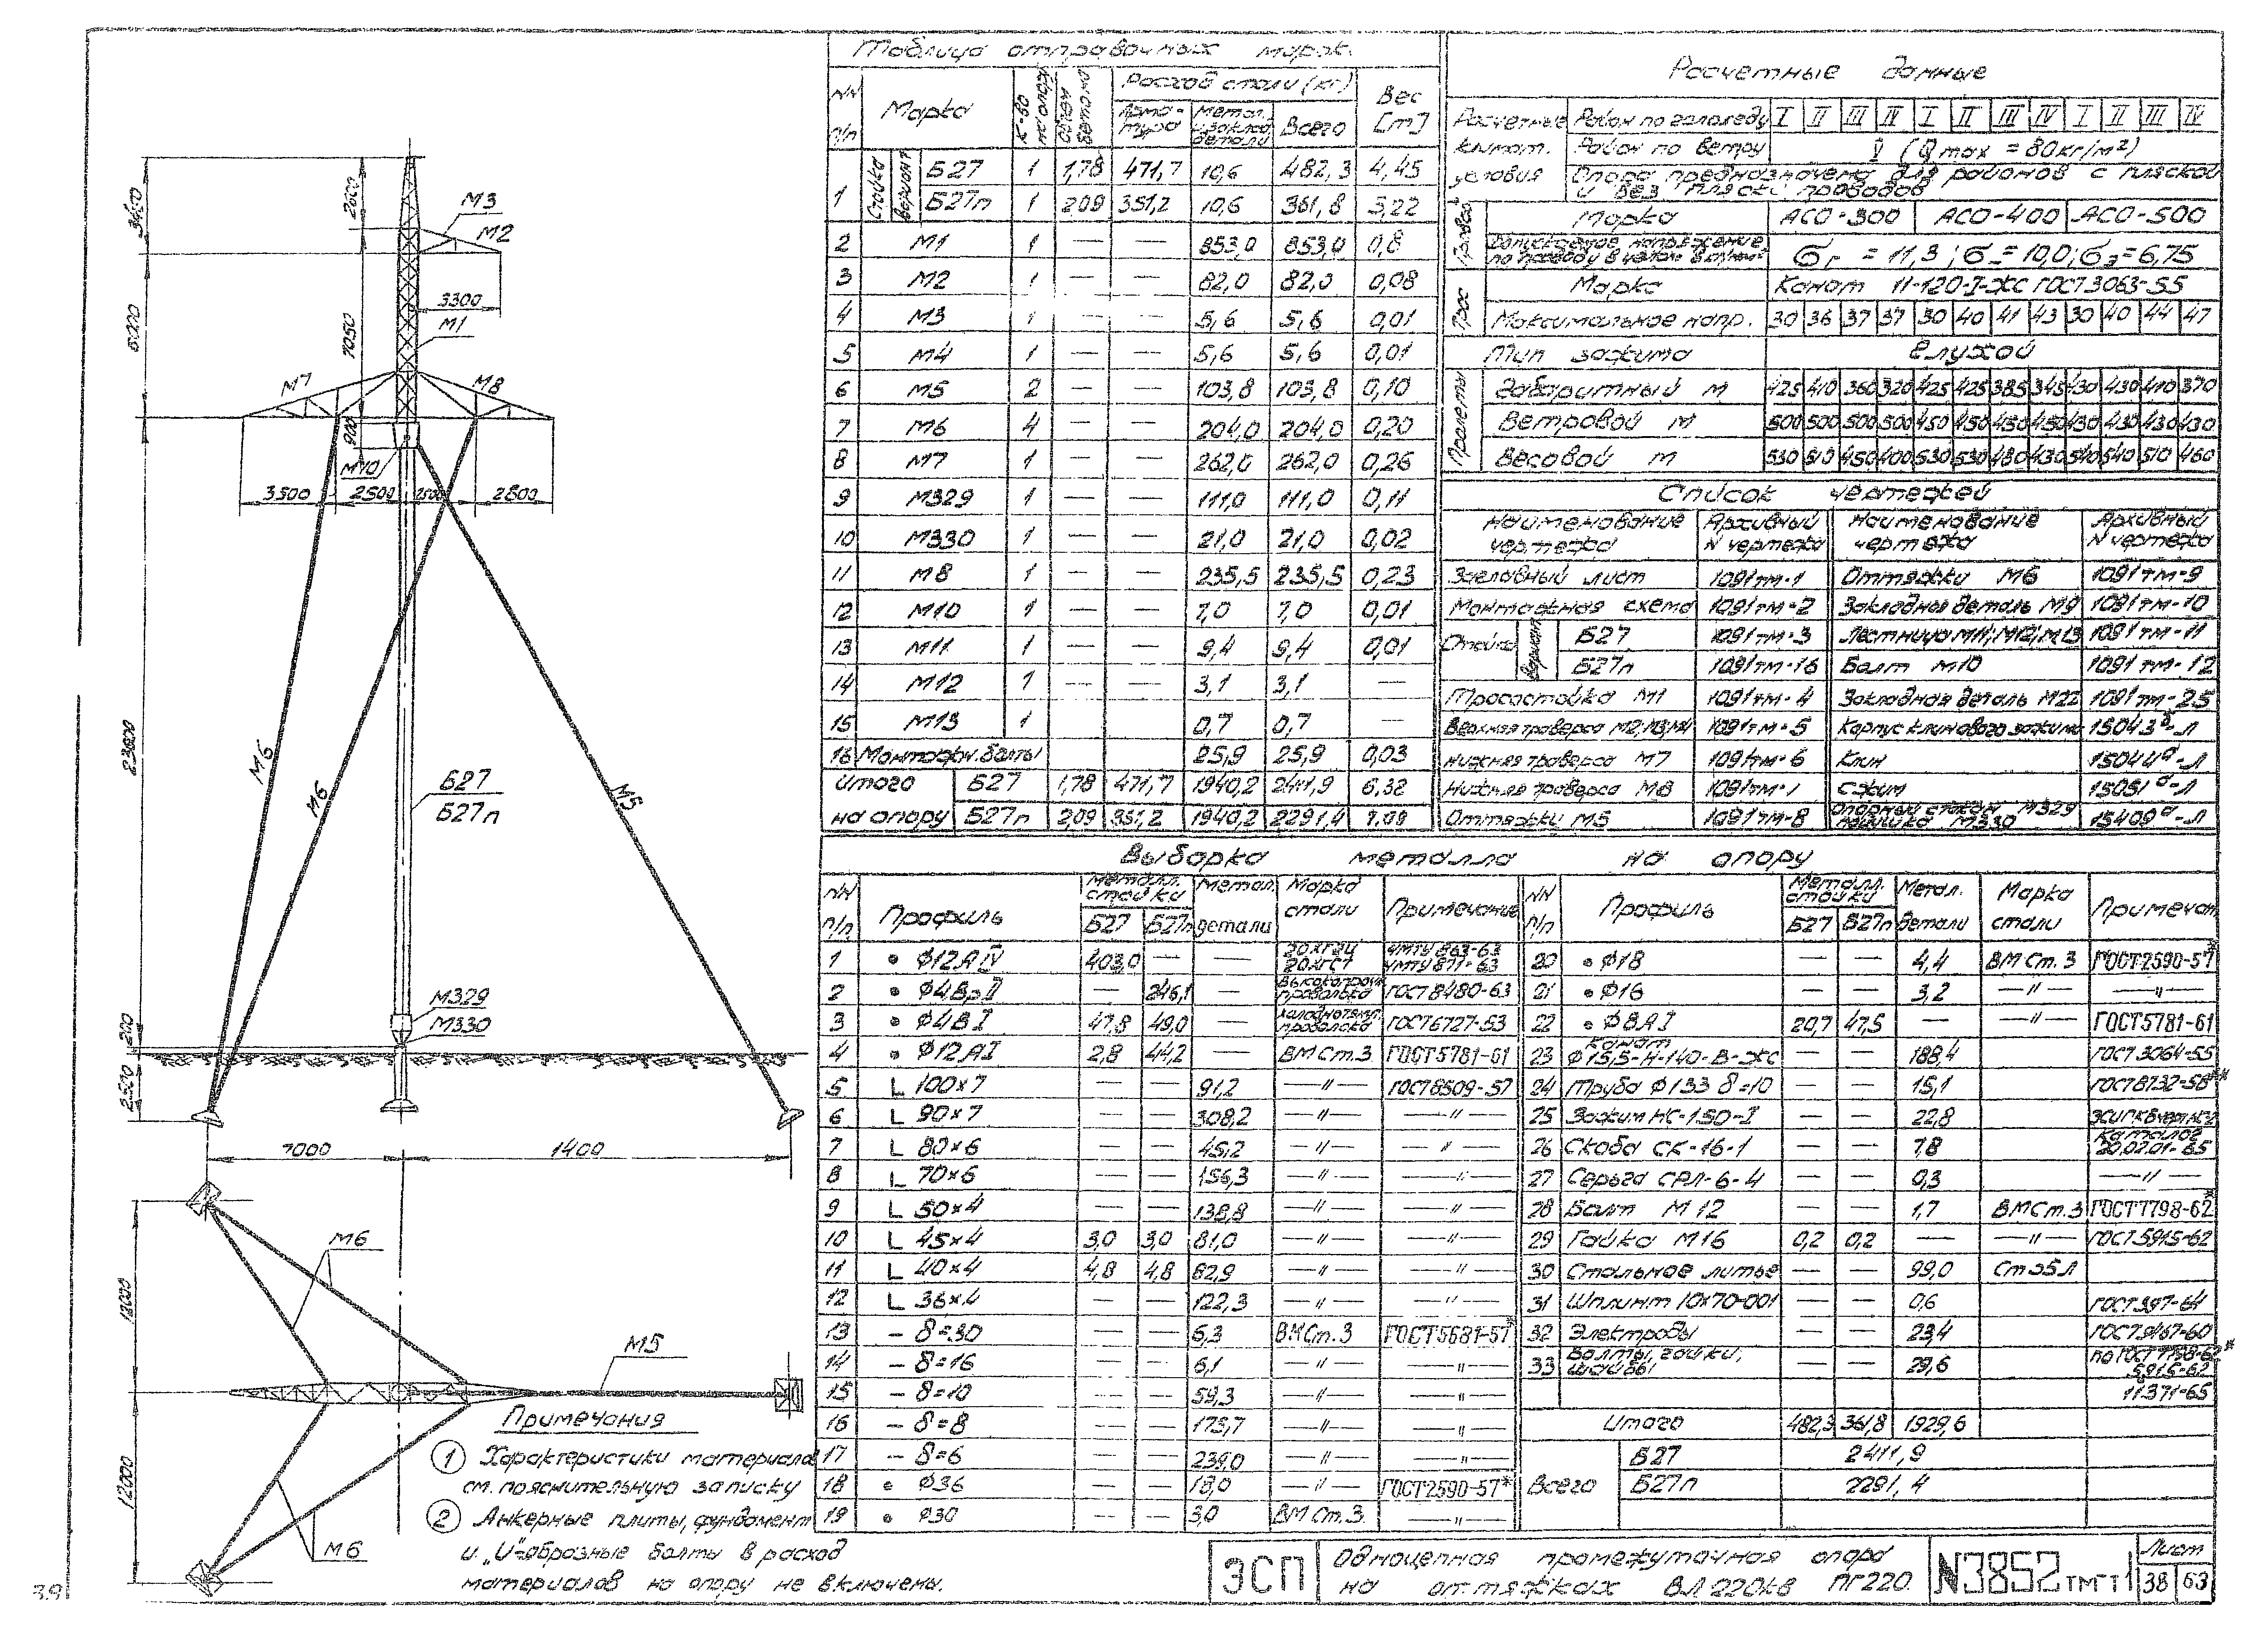 Таблица отправочных марок.
NN п/п | Марка | К-во на опору | Объем бетона | Расход стали (кг) | Вес [т]
Арматура | Метал. и заклад. детали | Всего
1 | Стойка вариант | Б27 | 1 | 1,78 | 471,7 | 10,6 | 482,3 | 4,45
Б27п | 1 | 2,09 | 351,2 | 10,6 | 361,8 | 5,22
2 | М1 | 1 | — | — | 853,0 | 853,0 | 0,8
3 | М2 | 1 | — | — | 82,0 | 82,0 | 0,08
4 | М3 | 1 | — | — | 5,6 | 5,6 | 0,01
5 | М4 | 1 | — | — | 5,6 | 5,6 | 0,01
6 | М5 | 2 | — | — | 103,8 | 103,8 | 0,10
7 | М6 | 4 | — | — | 204,0 | 204,0 | 0,20
8 | М7 | 1 | — | — | 262,0 | 262,0 | 0,26
9 | М329 | 1 | — | — | 111,0 | 111,0 | 0,11
10 | М330 | 1 | — | — | 21,0 | 21,0 | 0,02
11 | М8 | 1 | — | — | 235,5 | 235,5 | 0,23
12 | М10 | 1 | — | — | 7,0 | 7,0 | 0,01
13 | М11 | 1 | — | — | 9,4 | 9,4 | 0,01
14 | М12 | 1 | — | — | 3,1 | 3,1 | —
15 | М13 | 1 | 0,7 | 0,7 | —
16 | Монтажн. болты | 25,9 | 25,9 | 0,03
Итого | Б27 | 1,78 | 471,7 | 1940,2 | 2411,9 | 6,32
на опору | Б27п | 2,09 | 351,2 | 1940,2 | 2291,4 | 7,09
Расчетные данные
Расчетные климат. условия | Район по гололеду | I | II | III | IV | I | II | III | IV | I | II | III | IV
Район по ветру | V (Qmax = 80кг/м²)
Опора предназначена для районов с пляской
и без пляски проводов
Провод | Марка | АСО-300 | АСО-400 | АСО-500
Допускаемое напряжение по проводу в целом в | σг = 11,3; σ- = 10,0; σэ = 6,75
Трос | Марка | Канат 11-120-I-ЖС ГОСТ 3063-55
Максимальное напр. | 30 | 36 | 37 | 37 | 30 | 40 | 41 | 43 | 30 | 40 | 44 | 47
Тип зажима | Глухой
Пролеты | Габаритный м | 425 | 410 | 360 | 320 | 425 | 425 | 385 | 345 | 430 | 430 | 410 | 370
Ветровой м | 500 | 500 | 500 | 500 | 450 | 450 | 450 | 450 | 430 | 430 | 430 | 430
Весовой м | 530 | 510 | 450 | 400 | 530 | 530 | 480 | 430 | 540 | 540 | 510 | 460
Список чертежей
Наименование чертежа | Архивный N чертежа | Наименование чертежа | Архивный N чертежа
Заглавный лист | 1091тм-1 | Оттяжки М6 | 1091тм-9
Монтажная схема | 1091тм-2 | Закладная деталь М9 | 1091тм-10
Стойка вариант | Б27 | 1091тм-3 | Лестница М11; М12; М13 | 1091тм-11
Б27п | 1091тм-16 | Болт М10 | 1091тм-12
Тросостойка М1 | 1091тм-4 | Закладная деталь М22 | 1091тм-25
Верхняя траверса М2; М3; М4 | 1091тм-5 | Корпус клинового зажима | 15043-Л
Нижняя траверса М7 | 1091тм-6 | Клин | 15044ᵃ-Л
Нижняя траверса М8 | 1091тм-7 | Сжим | 15051ᵃ-Л
Оттяжки М5 | 1091тм-8 | Опорный стакан М329 | 15409ᵃ-Л
М330
Выборка металла на опору
NN п/п | Профиль | Металл. стойки Б27 | Б27п | Метал. детали | Марка стали | Примечание
1 | • Ф12АIV | 403,0 | — | — | 20ХГ2Ц 20ХГСТ | ЧМТУ 863-63 ЧМТУ 871-63
2 | • Ф4ВрII | — | 246,1 | — | Высокопрочн. проволока | ГОСТ8480-63
3 | • Ф4ВI | 47,8 | 49,0 | — | Холоднотянут. проволока | ГОСТ6727-53
4 | • Ф12АI | 2,8 | 44,2 | — | ВМСт.3 | ГОСТ5781-61
5 | L 100×7 | — | — | 91,2 | —"— | ГОСТ8509-57
6 | L 90×7 | — | — | 308,2 | —"— | —"—
7 | L 80×6 | — | — | 45,2 | —"— | "—
8 | L 70×6 | — | — | 156,3 | —"— | —"—
9 | L 50×4 | — | — | 138,8 | —"— | —"—
10 | L 45×4 | 3,0 | 3,0 | 81,0 | —"— | —"—
11 | L 40×4 | 4,8 | 4,8 | 62,9 | —"— | —"—
12 | L 36×4 | — | — | 122,3 | —"— | —"—
13 | - δ=30 | — | — | 6,3 | ВМСт.3 | ГОСТ5681-57*
14 | - δ=16 | — | — | 6,1 | —"— | —"—
15 | - δ=10 | — | — | 59,3 | —"— | —"—
16 | - δ=8 | — | — | 173,7 | —"— | —"—
17 | - δ=6 | — | — | 239,0 | —"— | —"—
18 | • Ф36 | — | — | 18,0 | —"— | ГОСТ2590-57*
19 | • Ф30 | — | — | 3,0 | ВМСт.3. | —"—
NN п/п | Профиль | Металл. стойки Б27 | Б27п | Метал. детали | Марка стали | Примечан.
20 | • Ф18 | — | — | 4,4 | ВМСт.3 | ГОСТ2590-57*
21 | • Ф16 | — | — | 3,2 | —"— | —"—
22 | • Ф8АI | 20,7 | 47,5 | — | —"— | ГОСТ5781-61
23 | Канат Ф15,5-Н-140-В-ЖС | — | — | 188,4 | ГОСТ3064-55
24 | Труба Ф133 δ=10 | — | — | 15,1 | ГОСТ8732-58**
25 | Зажим НС-150-I | — | — | 22,8
26 | Скоба СК-16-1 | — | — | 7,8 | Каталог 20.02.01-65
27 | Серьга СРЛ-6-4 | — | — | 0,3 | —"—
28 | Болт М12 | — | — | 1,7 | ВМСт.3 | ГОСТ7798-62*
29 | Гайка М16 | 0,2 | 0,2 | — | —"— | ГОСТ5915-62
30 | Стальное литье | — | — | 99,0 | Ст35Л
31 | Шплинт 10×70-001 | — | — | 0,6 | ГОСТ397-64
32 | Электроды | — | — | 23,4 | ГОСТ9467-60
33 | Болты, гайки, шайбы | — | — | 29,6 | по ГОСТ7798-62* 5915-62
11371-65
Итого | 482,3 | 361,8 | 1929,6
Всего | Б27 | 2411,9
Б27п | 2291,4
3400
2600
М3
М2
3300
6000
7050
М1
М7
М8
900
М10
3500
2500
2500
2800
23800
М6
М6
М5
Б27
Б27п
М329
М330
200
2500
7000
1400
12000
М6
М5
12000
М6
Примечания
① Характеристики материалов
см. пояснительную записку
② Анкерные плиты, фундамент
и „U"-образные болты в расход
материалов на опору не включены.
ЭСП
Одноцепная промежуточная опора
на оттяжках ВЛ 220кВ ПГ220.
N3852тм-т1
Лист
38 | 63
39